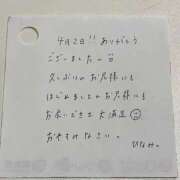 4月2日!! ありがとう
ございました
久しぶりのお客様にも
はじめましてのお客様にも
お会いできて大満足
おやすみなさい。
ひなみ